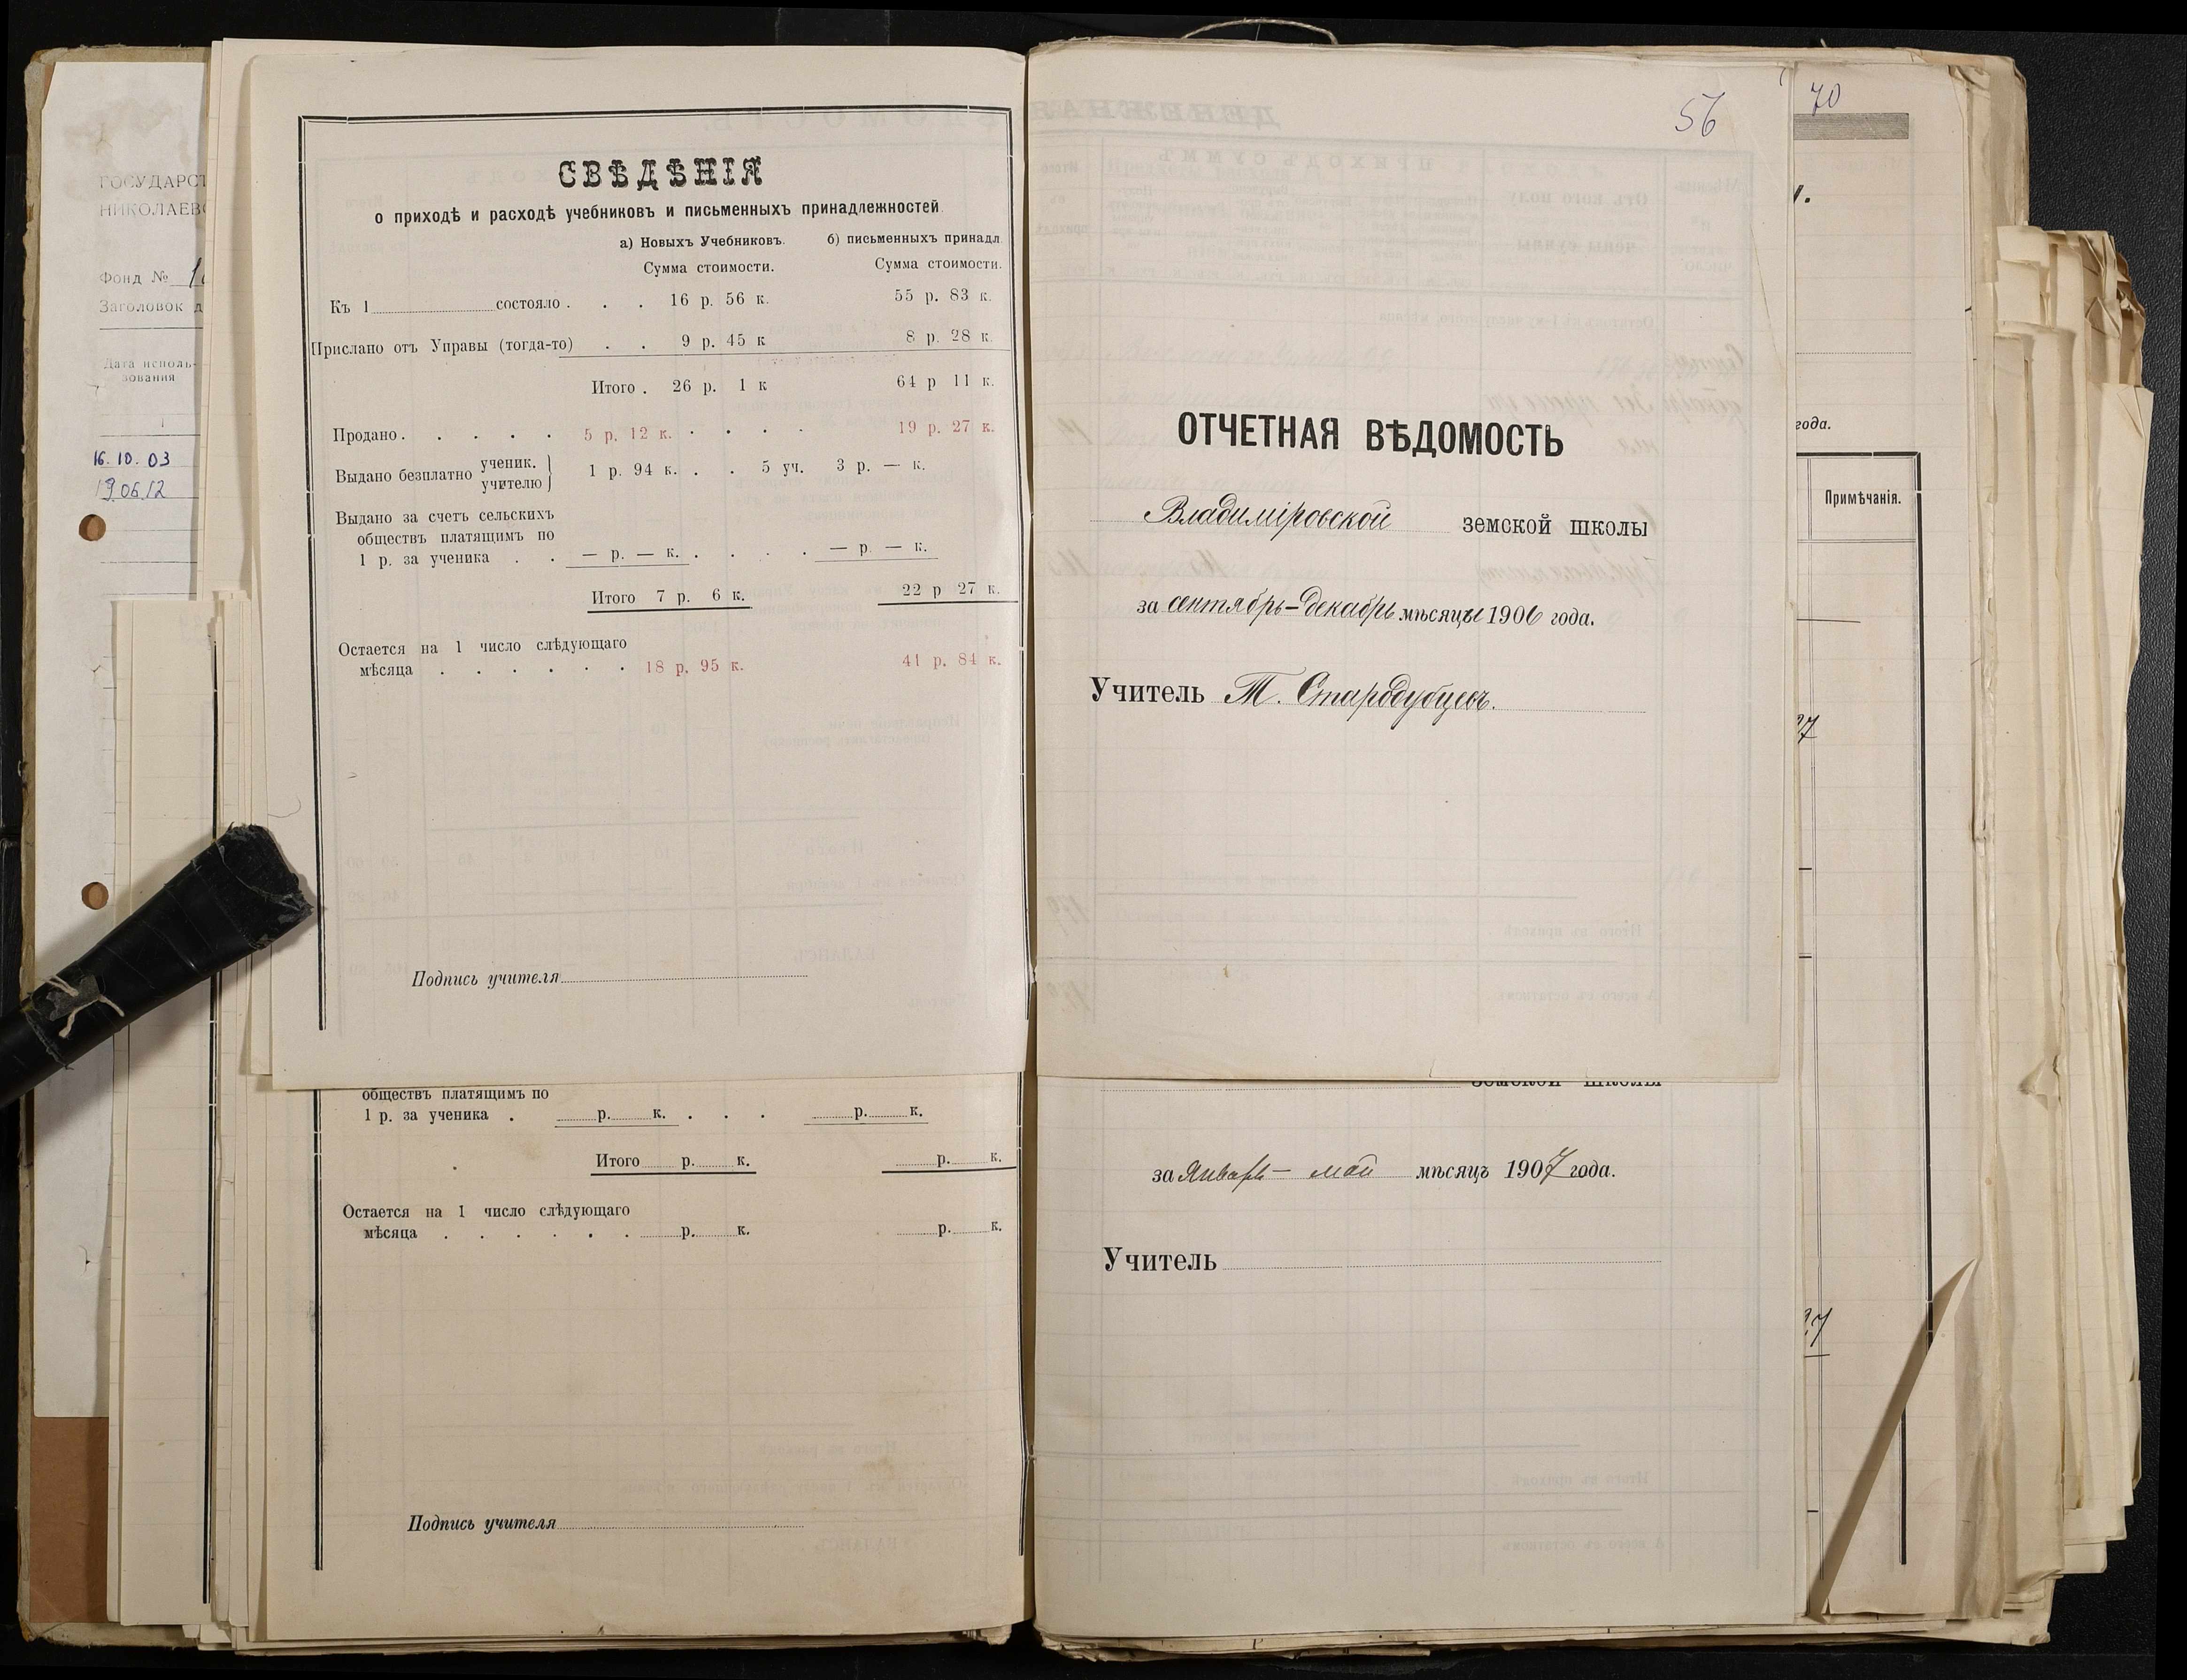 ГОСУДАРСТ
НИКОЛАЕВС
Фонд №
Заголовок д
Дата исполь-
зования
16.10.03
19.06.12
СВѢДѢНІЯ
о приходѣ и расходѣ учебниковъ и письменныхъ принадлежностей
а) Новыхъ Учебниковъ. б) письменныхъ принадл
Сумма стоимости. Сумма стоимости.
Къ 1 состояло . . . 16 р. 56 к. 55 р. 83 к.
Прислано отъ Управы (тогда-то) . . 9 р. 45 к 8 р. 28 к.
Итого . 26 р. 1 к 64 р 11 к.
Продано . . . . . 5 р. 12 к. . . . . 19 р. 27 к.
Выдано безплатно ученик. учителю } 1 р. 94 к. . . 5 уч. 3 р. — к.
Выдано за счет сельскихъ
обществъ платящимъ по
1 р. за ученика . . — р. — к. . . . . — р. — к.
Итого 7 р. 6 к. 22 р 27 к.
Остается на 1 число слѣдующаго
мѣсяца . . . . . . 18 р. 95 к. 41 р. 84 к.
Подпись учителя
обществъ платящимъ по
1 р. за ученика . р. к. . . . р. к.
Итого р. к. р. к.
Остается на 1 число слѣдующаго
мѣсяца . . . . . . р. к. р. к.
Подпись учителя
56
ОТЧЕТНАЯ ВѢДОМОСТЬ
Владиміровской земской школы
за сентябрь-декабрь мѣсяцы 1906 года.
Учитель Т. Стародубцевъ.
земской школы
за Январь - май мѣсяцъ 1907 года.
Учитель
70
года.
Примѣчанія.